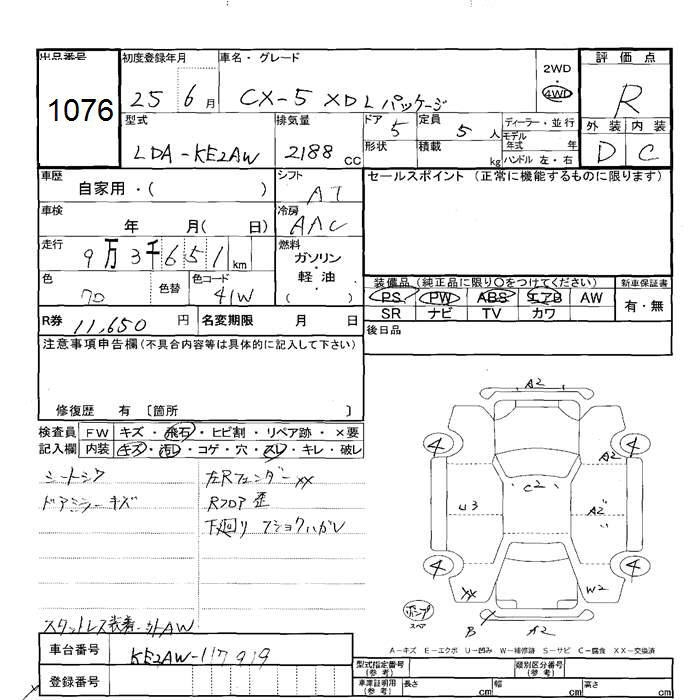 出品番号
1076
初度登録年月
25 6月
車名・グレード
CX-5 XDLパッケージ
2WD
4WD
評価点
R
型式
LDA-KE2AW
排気量
2188 cc
ドア
5
形状
定員
5 人
積載
kg
ディーラー・並行
モデル年式 年
ハンドル 左・右
外装 内装
D C
車歴
自家用・( )
シフト
AT
セールスポイント (正常に機能するものに限ります)
車検
年 月( 日)
冷房
AAC
走行
9万3千651km
燃料
ガソリン
・
軽油
( )
色
色替
色コード
41W
装備品 (純正品に限り○をつけてください)
PS PW ABS エアB AW
SR ナビ TV カワ
新車保証書
有・無
R券 11,650 円
名変期限 月 日
後日品
注意事項申告欄(不具合内容等は具体的に記入して下さい)
修復歴 有 〔箇所 〕
検査員記入欄
FW キズ・飛石・ヒビ割・リペア跡・×要
内装 キズ・汚レ・コゲ・穴・スレ・キレ・破レ
シートシワ
ドアミラーキズ
左Rフェンダー XX
Rフロア 歪
下廻り
スタットレス装着
車台番号
KE2AW-117919
登録番号
A2
4 4
A2
C2
U3
A2
4 4
XX
W2
ポンプ
スペア
X
B
A2
A-キズ E-エクボ U-凹み W-補修跡 S-サビ C-腐食 XX-交換済
型式指定番号
(参考)
類別区分番号
(参考)
車庫証明用
(参考)
長さ cm 幅 cm 高さ cm